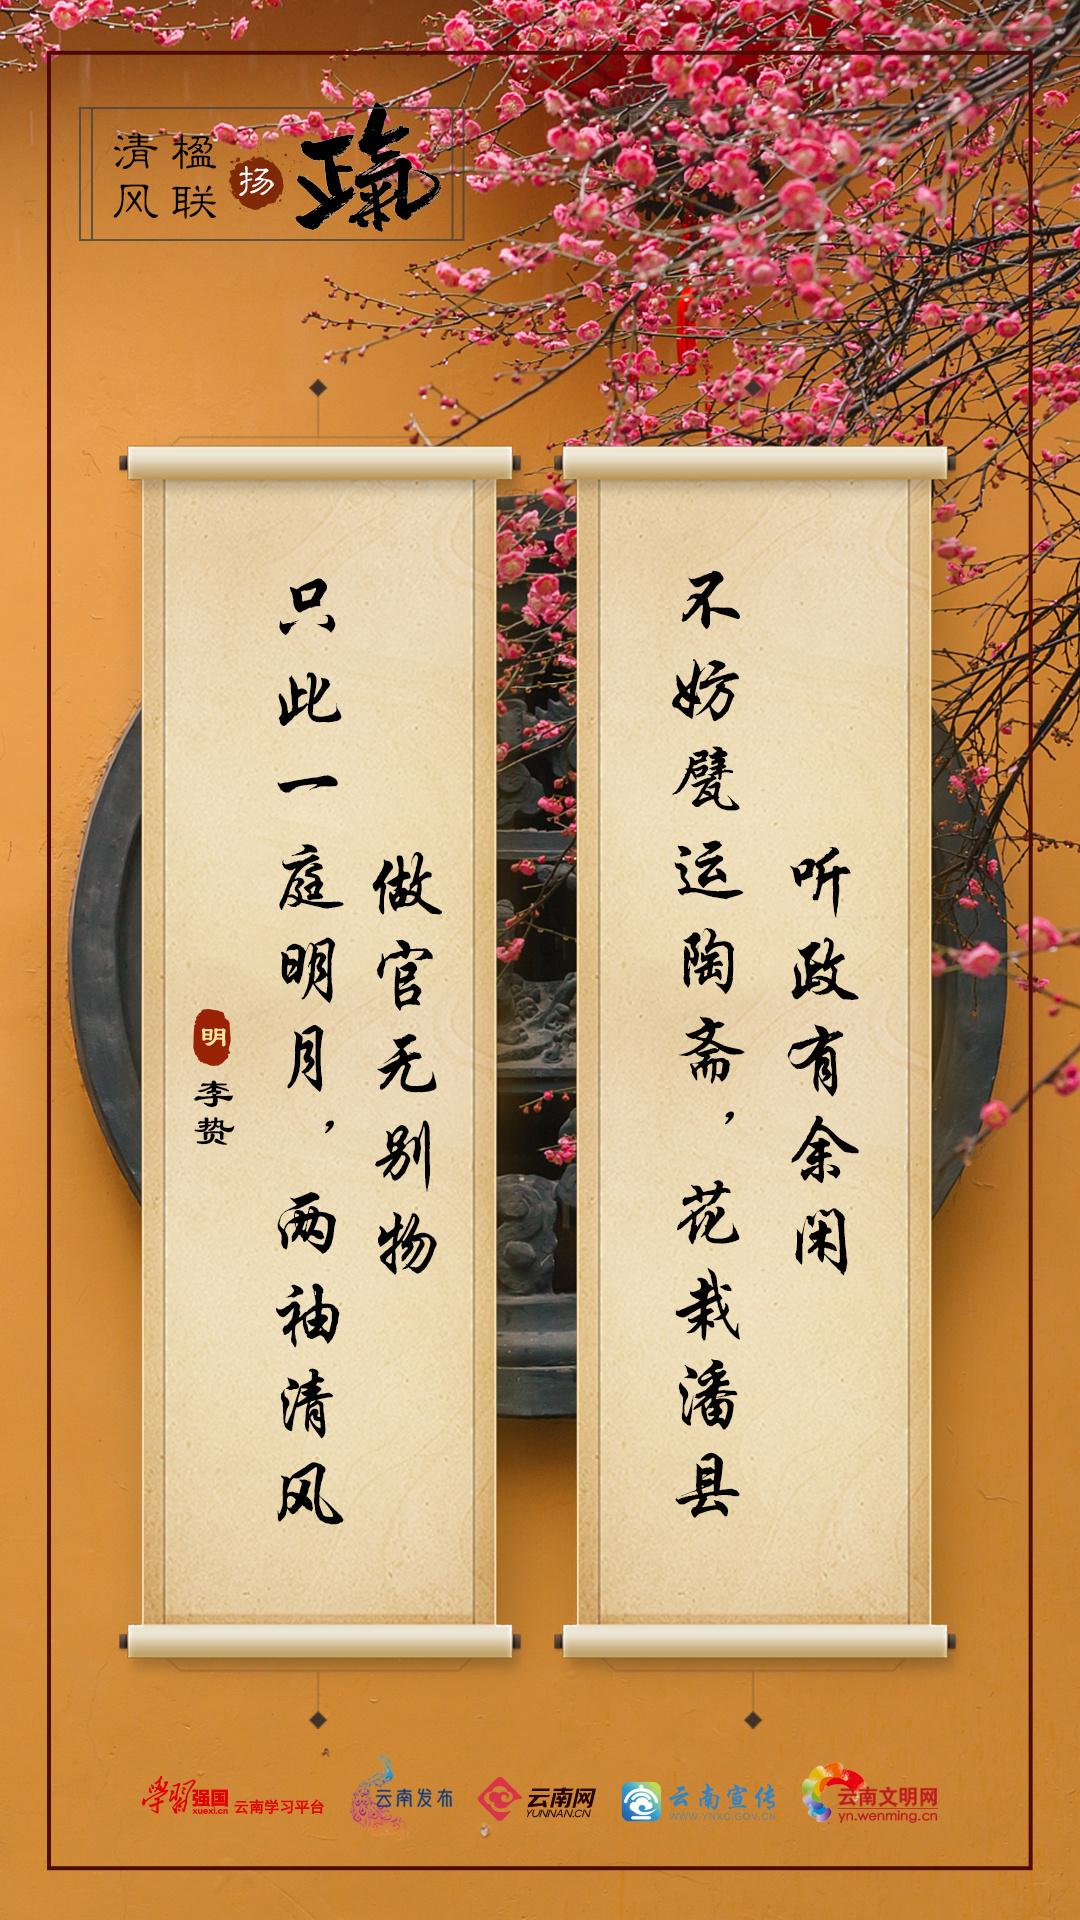 楹联
清风
扬
正氣
听政有余闲
不妨甓运陶斋，花栽潘县
做官无别物
只此一庭明月，两袖清风
明
李贽
學習强国
xuexi.cn
云南学习平台
云南发布
云南网
YUNNAN.CN
云南宣传
WWW.YNXC.GOV.CN
云南文明网
yn.wenming.cn